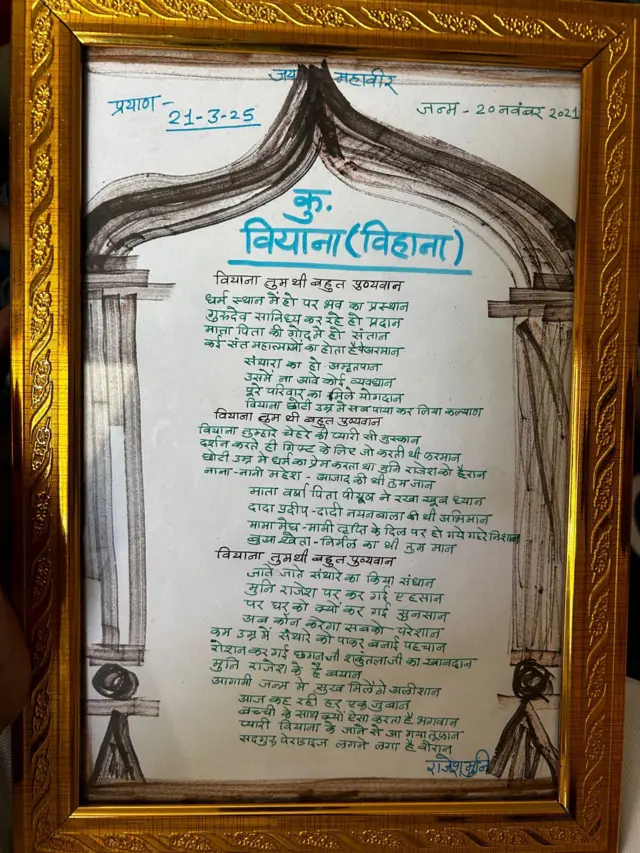 जय महावीर
प्रयाण -
21-3-25
जन्म - 20 नवंबर 2021
कु.
वियाना (विहाना)
वियाना तुम थी बहुत पुण्यवान
धर्म स्थान में हो पर भव का प्रस्थान
गुरुदेव सानिध्य कर रहे हो प्रदान
माता पिता की गोद मे हो संतान
कई संत महात्माओं का होता है फरमान
संथारा का हो अमृतपान
उसमें ना आवे कोई व्यवधान
पूरे परिवार का मिले योगदान
वियाना छोटी उम्र में सब पाया कर लिया कल्याण
वियाना तुम थी बहुत पुण्यवान
वियाना तुम्हारे चेहरे की प्यारी सी मुस्कान
दर्शन करते ही गिफ्ट के लिए जो करती थी फरमान
छोटी उम्र मे धर्म का प्रेम करता था मुनि राजेश को हैरान
नाना-नानी महेश - आजाद की थी तुम जान
माता वर्षा पिता पीयूष ने रखा खूब ध्यान
दादा प्रदीप - दादी नयनबाला की थी अभिमान
मामा मेघ - मामी तृप्ति के दिल पर हो गये गहरे निशान
बुआ श्वेता - निर्मल का थी तुम मान
वियाना तुम थी बहुत पुण्यवान
जाते जाते संथारे का किया संधान
मुनि राजेश पर कर गई एहसान
पर घर को क्यों कर गई सुनसान
अब कौन करेगा सबको परेशान
कम उम्र में संथारे को पाकर बनाई पहचान
रोशन कर गई छगनजी शकुंतलाजी का खानदान
मुनि राजेश के है बयान
आगामी जन्म मे सुख मिलेंगे अलीशान
आज कह रही हर एक जुबान
बच्ची के साथ क्यों ऐसा करता है भगवान
प्यारी वियाना के जाने से आ गया तूफान
सदगुरु लगने लगा है वीरान
राजेश मुनि